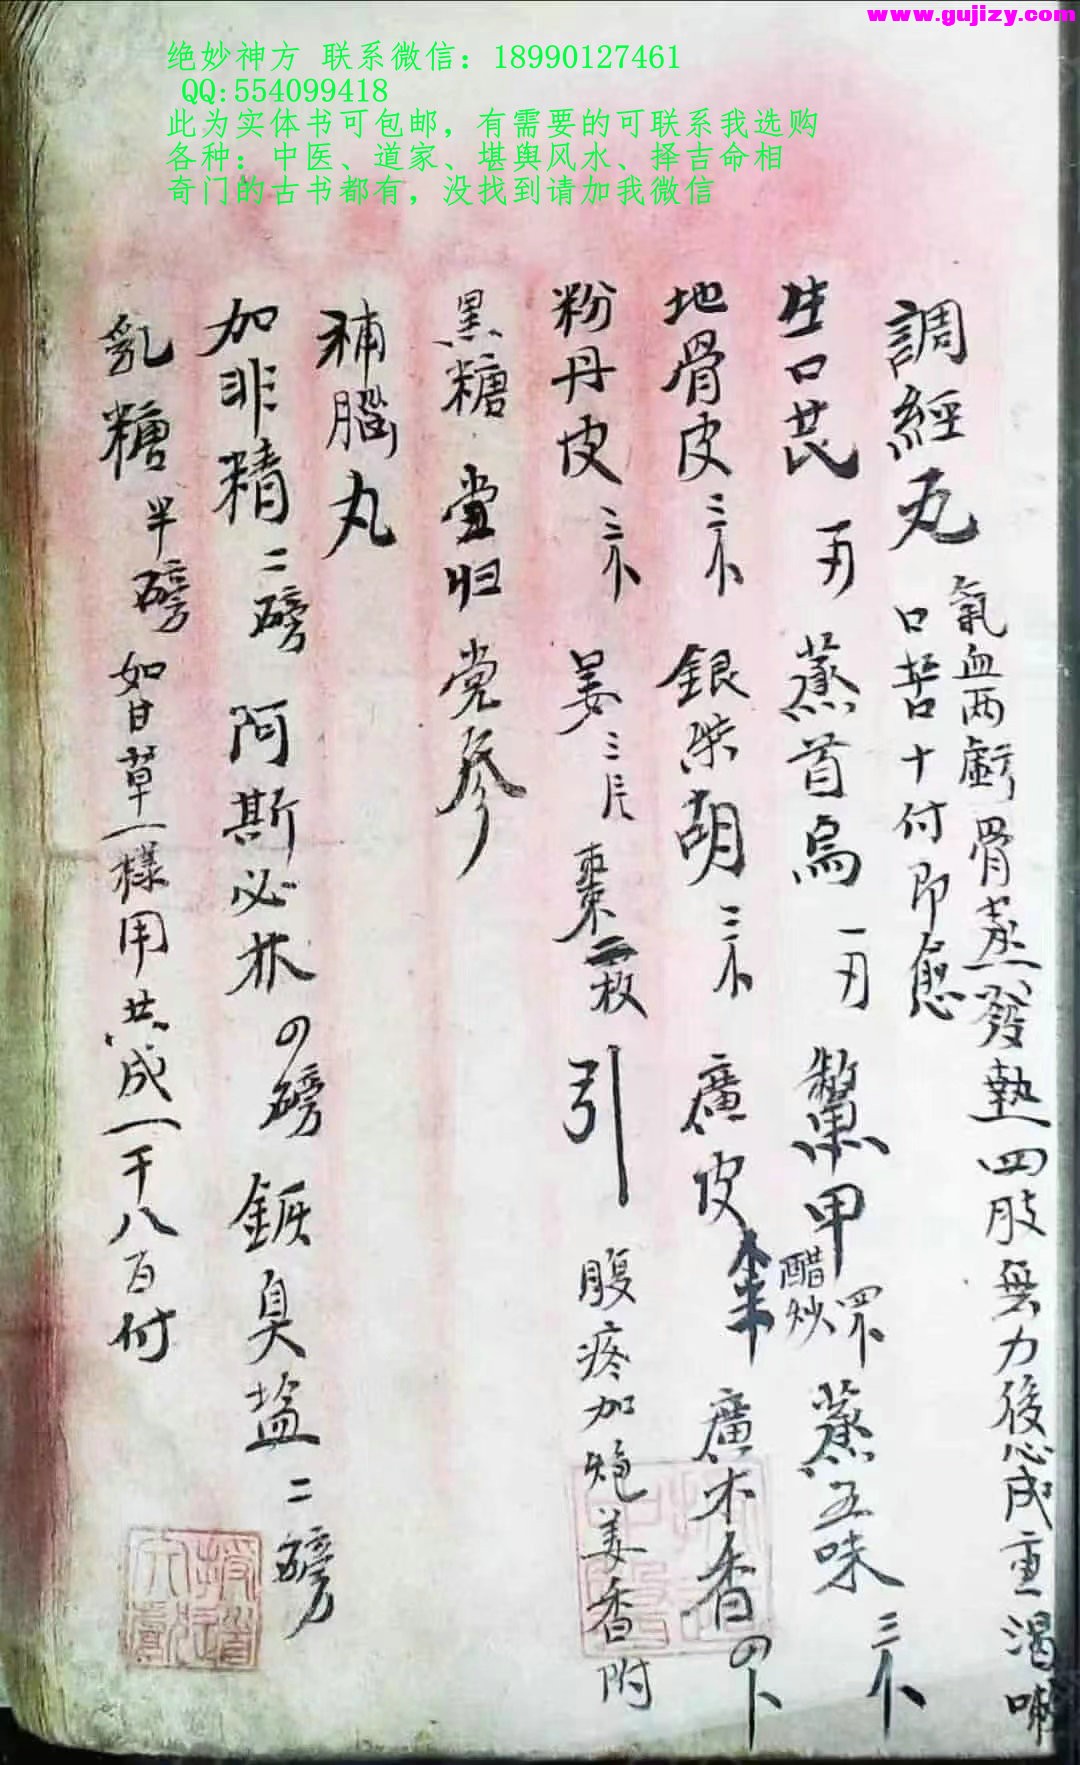 www.gujizy.com
绝妙神方 联系微信：18990127461
QQ:554099418
此为实体书可包邮，有需要的可联系我选购
各种：中医、道家、堪舆风水、择吉命相
奇门的古书都有，没找到请加我微信
調經丸
氣血兩虧骨蒸發熱四肢無力後心成重渴嗽
口苦十付即愈
生口芪 蒸首烏 鱉甲 醋炒 蒸五味
地骨皮 銀柴胡 廣皮 廣木香
粉丹皮 姜三片 棗二枚 引 腹疼加炮姜香附
黑糖 當归 党參
補腦丸
加非精二磅 阿斯必林 磅 臭盐二磅
乳糖半磅如甘草一樣用共成一千八百付